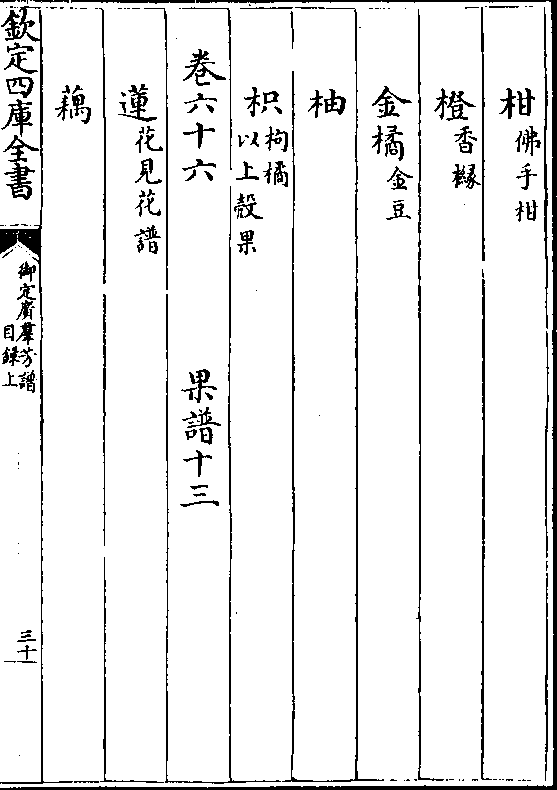 柑佛手柑
橙香櫞
金橘金豆
柚
枳枸橘
以上殼果
卷六十六　果譜十三
蓮花見花譜
藕
欽定四庫全書
御定廣羣芳譜
目録上
三十